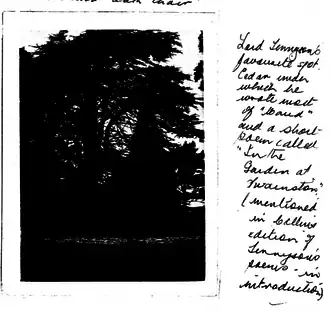 Lord Tennyson's
favourite spot.
Cedar under
which he
wrote most
of "Maud"
and a short
poem called
"In the
Garden at
Swainston"
(mentioned
in Collins
edition of
Tennyson's
poems - in
introduction)